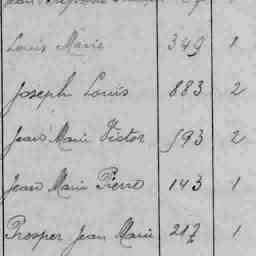 Louis Marie 349 1
Joseph Louis 883 2
Jean Marie Victor 593 2
Jean Marie Pierre 143 1
Prosper Jean Marie 217 1